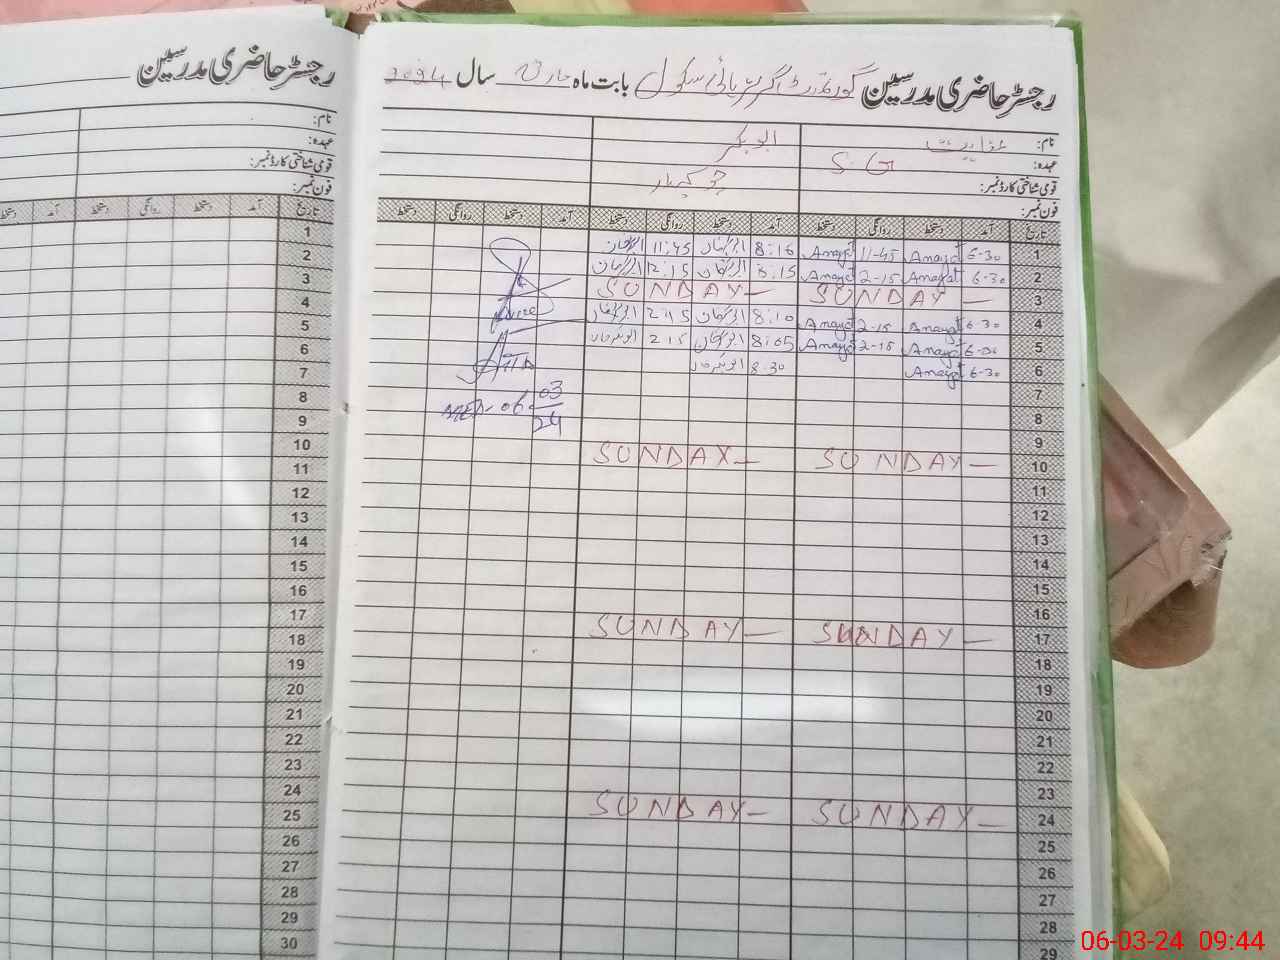 رجسٹر حاضری مدرسین گورنمنٹ گرلز ہائی سکول بابت ماہ مارچ سال 2024
نام: عنایت ابوبکر
عہدہ: S.G چوکیدار
قومی شناختی کارڈ نمبر:
فون نمبر:
تاریخ آمد دستخط روانگی دستخط آمد دستخط روانگی دستخط آمد دستخط روانگی دستخط
1 6-30 Anayat 11-45 Anayat 8:16 11:45
2 6-30 Anayat 2-15 Anayat 8:15 12:15
3 SUNDAY — SUNDAY —
4 6-30 Anayat 2-15 Anayat 8:10 2:15
5 6-30 Anayat 2-15 Anayat 8:05 2:15
6 6-30 Anayat 8:30
7
06-03/24
8
9
10 SUNDAY — SUNDAY —
11
12
13
14
15
16
17 SUNDAY — SUNDAY —
18
19
20
21
22
23
24 SUNDAY — SUNDAY —
25
26
27
28
29
رجسٹر حاضری مدرسین
نام:
عہدہ:
قومی شناختی کارڈ نمبر:
فون نمبر:
تاریخ آمد دستخط روانگی دستخط آمد دستخط
1
2
3
4
5
6
7
8
9
10
11
12
13
14
15
16
17
18
19
20
21
22
23
24
25
26
27
28
29
30
06-03-24 09:44